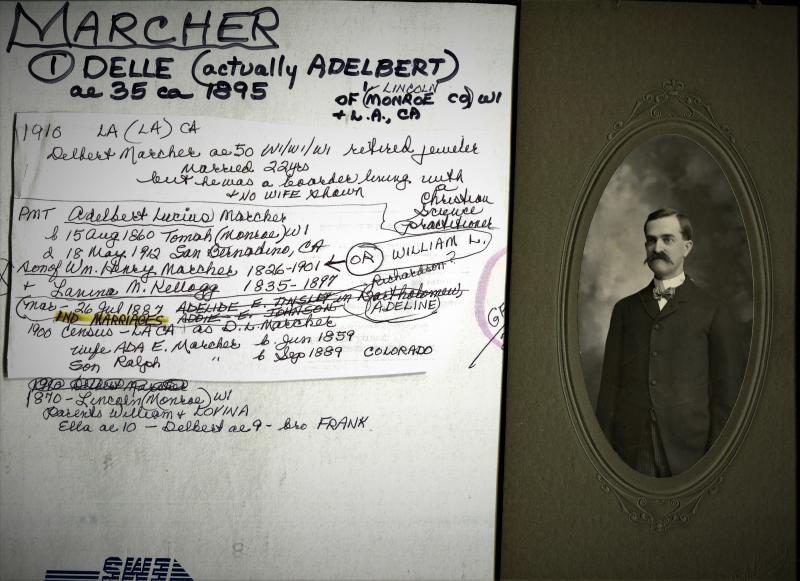 MARCHER
① DELLE (actually ADELBERT)
ae 35 ca 1895
LINCOLN
OF (MONROE CO) WI
+ L.A., CA
1910 LA (LA) CA
Delbert Marcher ae 50 WI/WI/WI retired jeweler
Married 22 yrs
but he was a boarder living with
+ NO WIFE shown
a Christian
Science
Practitioner
PMT Adelbert Lucius Marcher
b 15 Aug 1860 Tomah (Monroe) WI
d 18 May 1912 San Bernadino, CA
son of Wm. Henry Marcher 1826-1901 ← OR WILLIAM L.
+ Lanina M. Kellogg 1835-1897
Richardson?
(mar - 26 Jul 1887 ADELIDE E. TINSLEY in Bartholomew,
IND MARRIAGES ADDIE E. JOHNSON (ADELINE)
1900 census - LA CA as D. L. Marcher
wife ADA E. Marcher b Jun 1859
son Ralph " b Sep 1889 COLORADO
1910 Delbert Marcher
1870 - Lincoln (Monroe) WI
parents William + LOVINA
Ella ae 10 - Delbert ae 9 - bro FRANK.